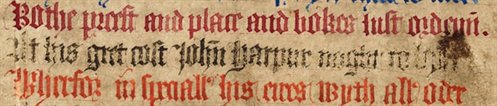 Bothe preest and place and bokes iust ordeyn̄.
At his gret cost John Harpur noght to
Wherfor in speciall his eires wyth all oder